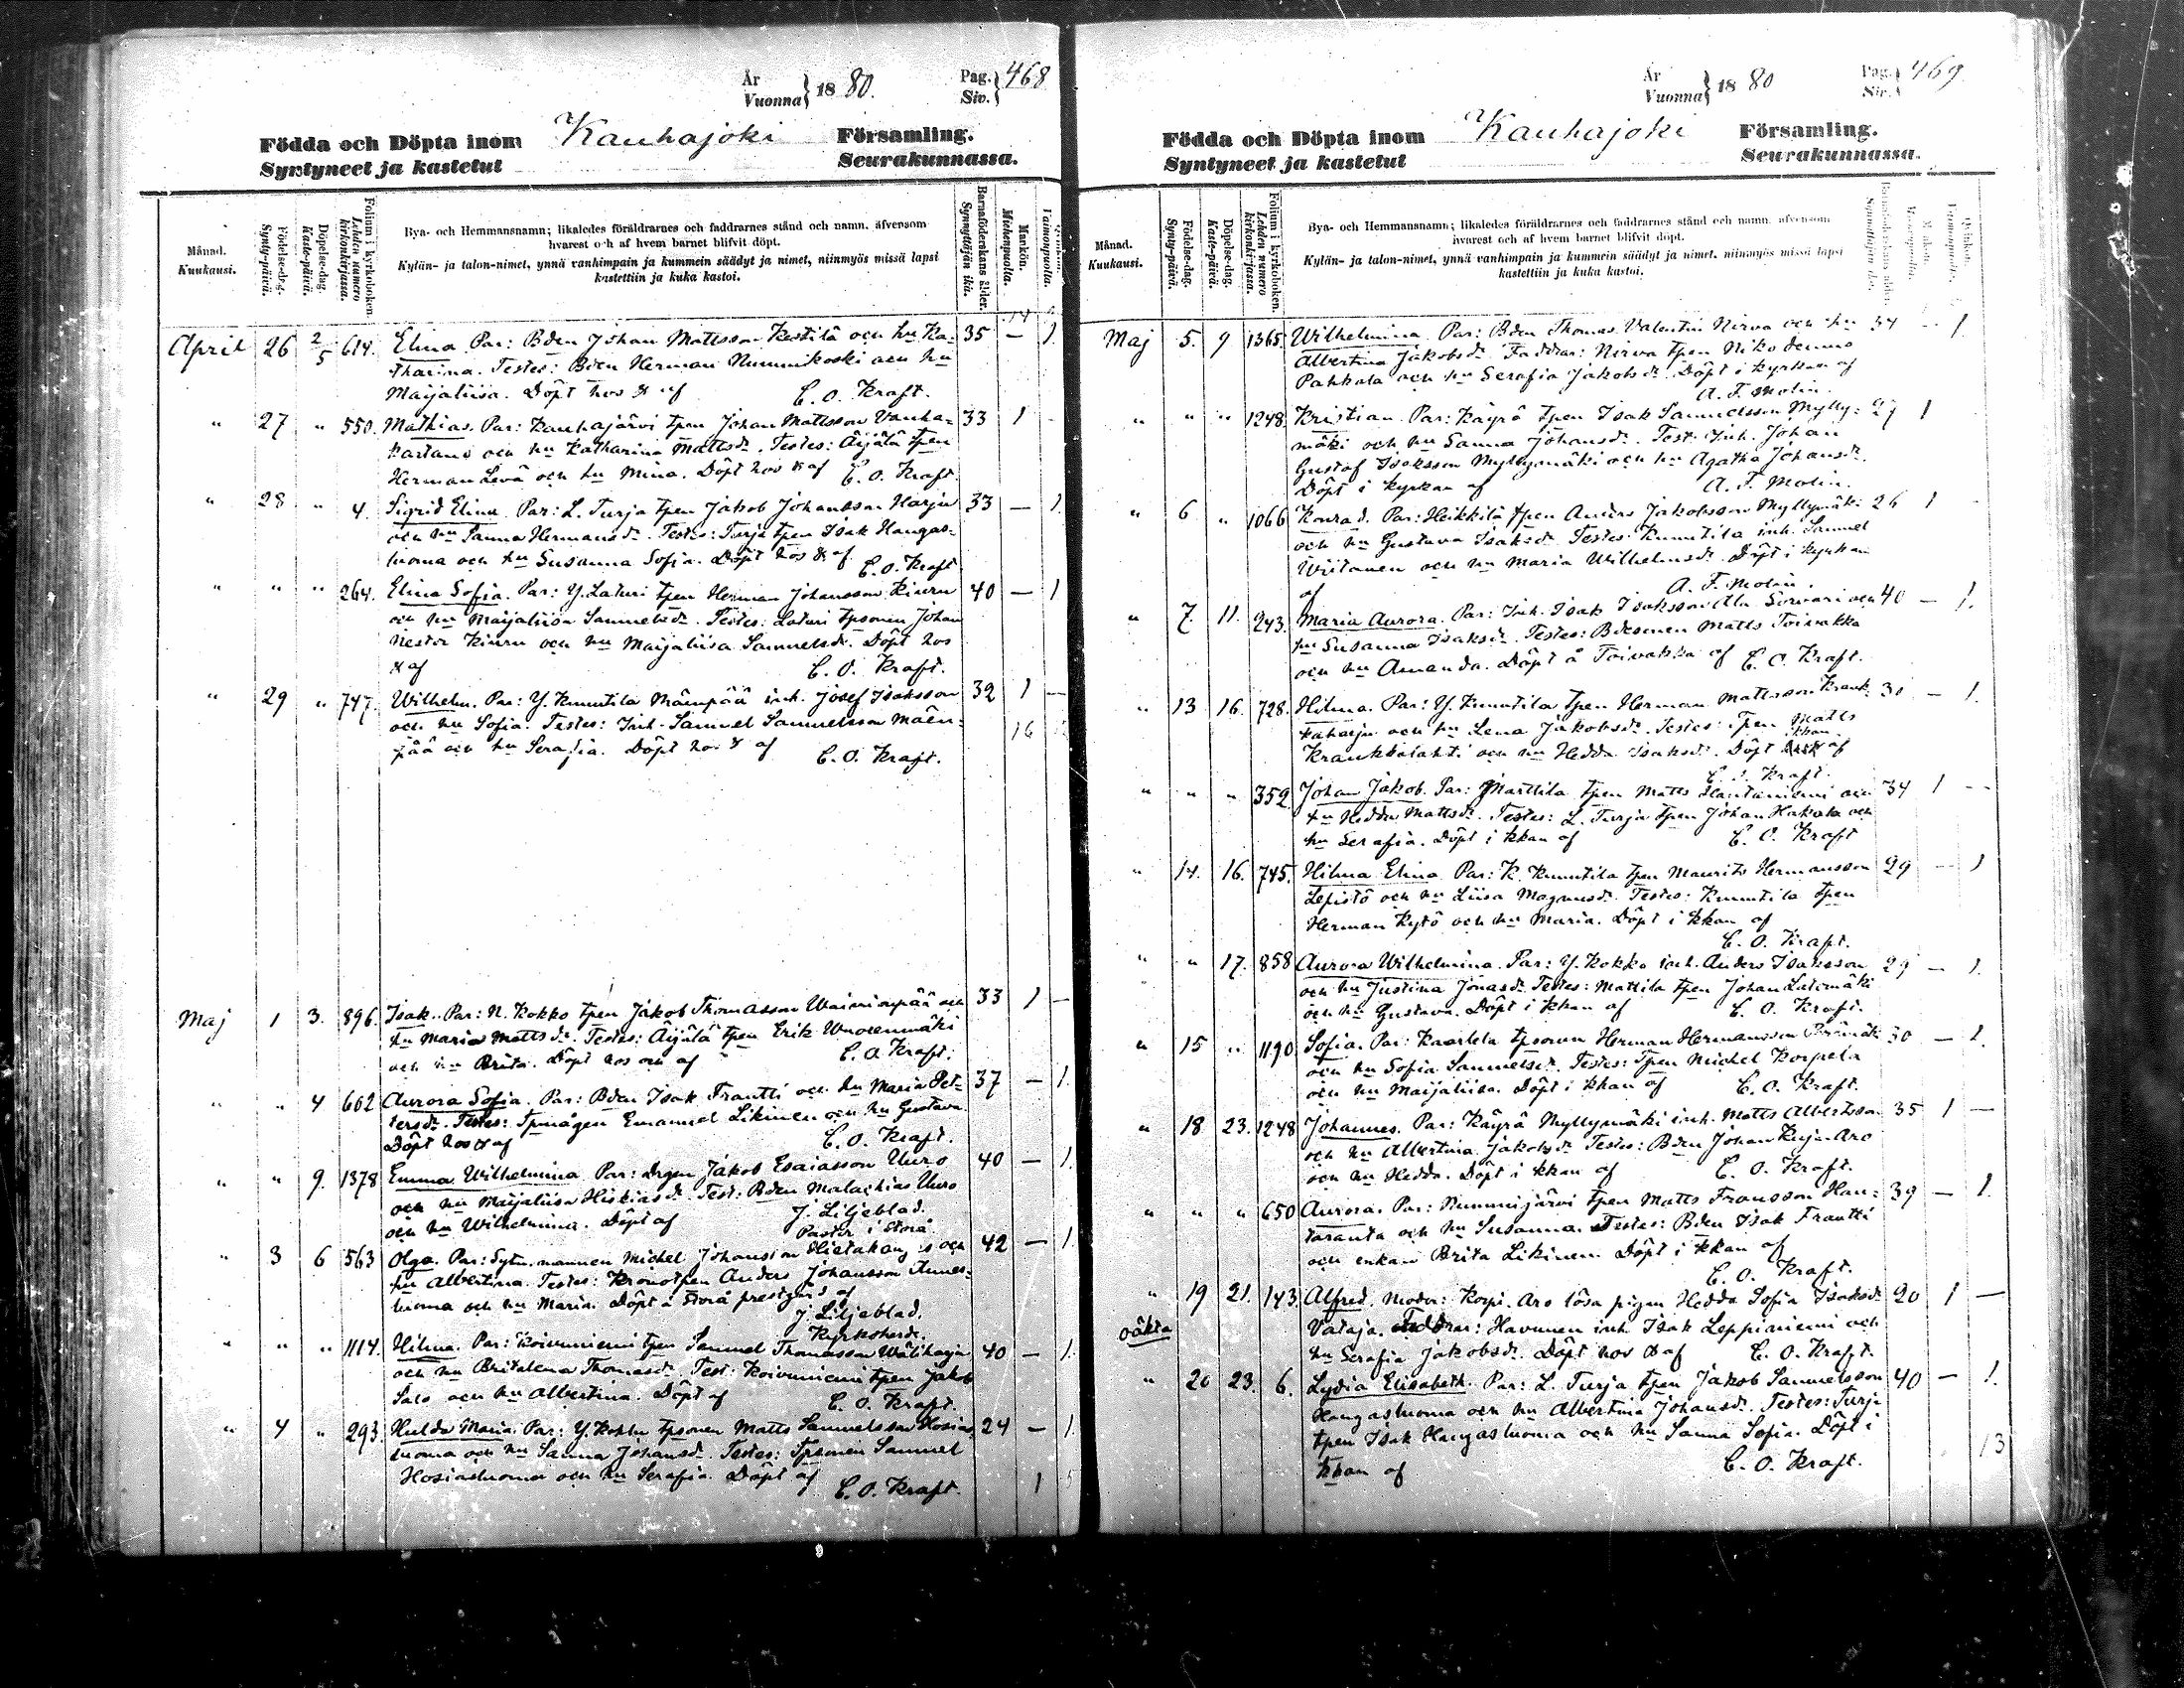 År
Vuonna } 1880.
Pag.
Siv. } 468
Födda och Döpta inom Kauhajoki Församling.
Syntyneet ja kastetut Seurakunnassa.
Månad.
Kuukausi.
Födelse-dag.
Synty-päivä.
Döpelse-dag.
Kaste-päivä.
Folium i kyrkoboken.
Lehden numero kirkonkirjassa.
Bya- och Hemmansnamn; likaledes föräldrarnes och faddrarnes stånd och namn, äfvensom
hvarest och af hvem barnet blifvit döpt.
Kylän- ja talon-nimet, ynnä vanhimpain ja kummein säädyt ja nimet, niinmyös missä lapsi
kastettiin ja kuka kastoi.
Barnaföderskans ålder.
Synnyttäjän ikä.
Mankön.
Miehenpuolta.
Vaimonpuolta.
April 26 2/5 614. Elina. Par: Bden Johan Mattsson Kestilä och hu Ka- 35 — 1
tharina. Testes: Bden Herman Nummikoski och hu
Maijaliisa. Döpt hos & af C. O. Kraft.
" 27 " 550. Mathias. Par: Kauhajärvi tpen Johan Mattsson Vanha- 33 1
kartano och hu Katharina Mattsdr. Testes: Äijälä tpen
Herman Levä och hu Mina. Döpt hos & af C. O. Kraft.
" 28 " 4. Sigrid Elina. Par: L. Turja tpen Jakob Johansson Harju 33 — 1
och hu Sanna Hermansdr. Testes: Turja tpen Isak Hangas-
luoma och hu Susanna Sofia. Döpt hos & af C. O. Kraft
" " " 264. Elina Sofia. Par: Y. Laturi tpen Herman Johansson Kiuru 40 — 1
och hu Maijaliisa Samuelsdr. Testes: Laturi tpsonen Johan
Nestor Kiuru och hu Maijaliisa Samuelsdr. Döpt hos
& af C. O. Kraft.
" 29 " 747. Wilhelm. Par: Y. Knuutila Mäenpää inh. Josef Isaksson 32 1 —
och hu Sofia. Testes: Inh. Samuel Samuelsson Mäen-
pää och hu Serafia. Döpt hos & af C. O. Kraft.
16
Maj 1 3. 896. Isak. Par: N. Kokko tpen Jakob Thomasson Wainionpää och 33 1 —
hu Maria Mattsdr. Testes: Äijälä tpen Erik Wuorenmäki
och hu Brita. Döpt hos och af C. O. Kraft.
" " 4 602 Aurora Sofia. Par: Bden Isak Frantti och hu Maria Pet- 37 — 1.
tersdr. Testes: Tpmågen Emanuel Likinen och hu Gustava
Döpt hos & af C. O. Kraft.
" " 9. 1378 Emma Wilhelmina. Par: Drgen Jakob Esaiasson Uuro 40 — 1.
och hu Maijaliisa Hiskiasdr. Test: Bden Malachias Uuro
och hu Wilhelmina. Döpt af J. Liljeblad.
Pastor i Storå
" 3 6 563 Olga. Par: Sytn. mannen Michel Johansson Hietakangas och 42 — 1
hu Albertina. Testes: Kronotpen Anders Johansson
luoma och hu Maria. Döpt å Storå prestgård af
J. Liljeblad.
Kyrkoherde.
" " " 1114. Hilma. Par: Koivuniemi tpen Samuel Thomasson Wäliharju 40 — 1.
och hu Britalena Thomasdr. Test: Koivuniemi tpen Jakob
Salo och hu Albertina. Döpt af C. O. Kraft.
" 4 " 293. Hulda Maria. Par: Y. Kokko tpsonen Matts Samuelsson Hosias- 24 — 1
luoma och hu Sanna Johansdr. Testes: Tpsonen Samuel
Hosiasluoma och hu Serafia. Döpt af C. O. Kraft.
1 5
År
Vuonna } 1880
Pag.
Siv. } 469
Födda och Döpta inom Kauhajoki Församling.
Syntyneet ja kastetut Seurakunnassa.
Månad.
Kuukausi.
Födelse-dag.
Synty-päivä.
Döpelse-dag.
Kaste-päivä.
Folium i kyrkoboken.
Lehden numero kirkonkirjassa.
Bya- och Hemmansnamn; likaledes föräldrarnes och faddrarnes stånd och namn, äfvensom
hvarest och af hvem barnet blifvit döpt.
Kylän- ja talon-nimet, ynnä vanhimpain ja kummein säädyt ja nimet, niinmyös missä lapsi
kastettiin ja kuka kastoi.
Maj 5. 9 1365. Wilhelmina. Par: Bden Thomas Valentin Nirva och hu 34 — 1
Albertina Jakobsdr. Faddrar: Nirva tpen Nikodemus
Pahkala och hu Serafia Jakobsdr. Döpt i kyrkan af
A. F. Molin.
" " " 1248. Kristian. Par: Käyrä tpen Isak Samuelsson Mylly- 27 1
mäki och hu Sanna Johansdr. Test: Inh. Johan
Gustaf Isaksson Myllymäki och hu Agatha Johansdr.
Döpt i kyrkan af A. F. Molin.
" 6 " 1066 Konrad. Par: Heikkilä tpen Anders Jakobsson Myllymäki 26 1
och hu Gustava Isaksdr. Testes: Knuutila inh. Samuel
Wiitanen och hu Maria Wilhelmsdr. Döpt i kyrkan
af A. F. Molin.
" 7. 11. 243. Maria Aurora. Par: Inh. Isak Isaksson Ala Sorvari och 40 — 1.
hu Susanna Isaksdr. Testes: Bdesonen Matts Toivakka
och hu Amanda. Döpt å Toivakka af C. O. Kraft.
" 13 16. 728. Hilma. Par: Y. Knuutila tpen Herman Mattsson Krank- 30 — 1.
kaharju och hu Lena Jakobsdr. Testes: Tpen Matts
Krankkalahti och hu Hedda Isaksdr. Döpt i kkan af
C. O. Kraft.
" " " 352. Johan Jakob. Par: Marttila tpen Matts Hautaniemi och 34 1 —
hu Hedda Mattsdr. Testes: L. Turja tpen Johan Hakala och
hu Serafia. Döpt i kkan af C. O. Kraft
" 14. 16. 745. Hilma Elina. Par: K. Knuutila tpen Maurits Hermansson 29 — 1
Lepistö och hu Liisa Magnusdr. Testes: Knuutila tpen
Herman Kytö och hu Maria. Döpt i kkan af
C. O. Kraft.
" " 17. 858 Aurora Wilhelmina. Par: Y. Kokko inh. Anders Isaksson 29 — 1.
och hu Justina Jonasdr. Testes: Mattila tpen Johan Latomäki
och hu Gustava. Döpt i kkan af C. O. Kraft.
" 15 " 1190 Sofia. Par: Kaarlela tpsonen Herman Hermansson 30 — 1.
och hu Sofia Samuelsdr. Testes: Tpen Michel Korpela
och hu Maijaliisa. Döpt i kkan af C. O. Kraft.
" 18 23. 1248 Johannes. Par: Käyrä Myllymäki inh. Matts Albertsson 35 1 —
och hu Albertina Jakobsdr. Testes: Bden Johan Kuja-Aro
och hu Hedda. Döpt i kkan af C. O. Kraft.
" " " 650 Aurora. Par: Nummijärvi tpen Matts Fransson Hau- 39 — 1.
taranta och hu Susanna. Testes: Bden Isak Frantti
och enkan Brita Likinen. Döpt i kkan af
C. O. Kraft.
" 19 21. 143 Alfred. Moder: Korpi-Aro lösa pigan Hedda Sofia Isaksdr 20 1 —
oäkta Vataja. Faddrar: Havunen inh. Isak Leppiniemi och
hu Serafia Jakobsdr. Döpt hos & af C. O. Kraft.
" 20 23. 6. Lydia Elisabeth. Par: L. Turja tpen Jakob Samuelsson 40 — 1.
Hangasluoma och hu Albertina Johansdr. Testes: Turja
tpen Isak Hangasluoma och hu Sanna Sofia. Döpt i
kkan af C. O. Kraft.
13